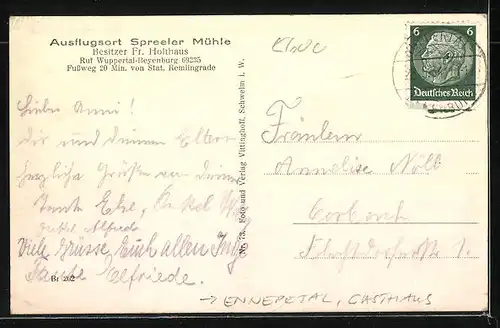 Ausflugsort Spreeler Mühle
Besitzer Fr. Holthaus
Ruf Wuppertal-Beyenburg 69235
Fußweg 20 Min. von Stat. Remlingrade
6 6
Deutsches Reich
Liebe Anni!
Dir und deinen Eltern
herzliche Grüße von deiner
Tante Else, Onkel
Onkel Alfred
Viele Grüsse Euch allen
Tante Elfriede.
Br 202
Nr. 13. Foto und Verlag Vittinghoff, Schwelm i. W.
Fräulein
Annelise Nöll
Corbach
1.
→ ENNEPETAL, GASTHAUS